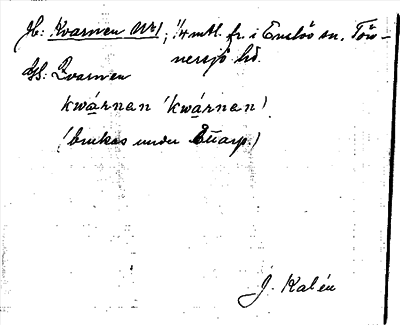 Jb: Kvarnen Nr 1, 1/4 mtl. fr. i Enslöv sn. Tön-
nersjö hd.
dss: Qvarnen
kwárnan (kwárnan)
(brukas under Tuarp.)
J. Kalén